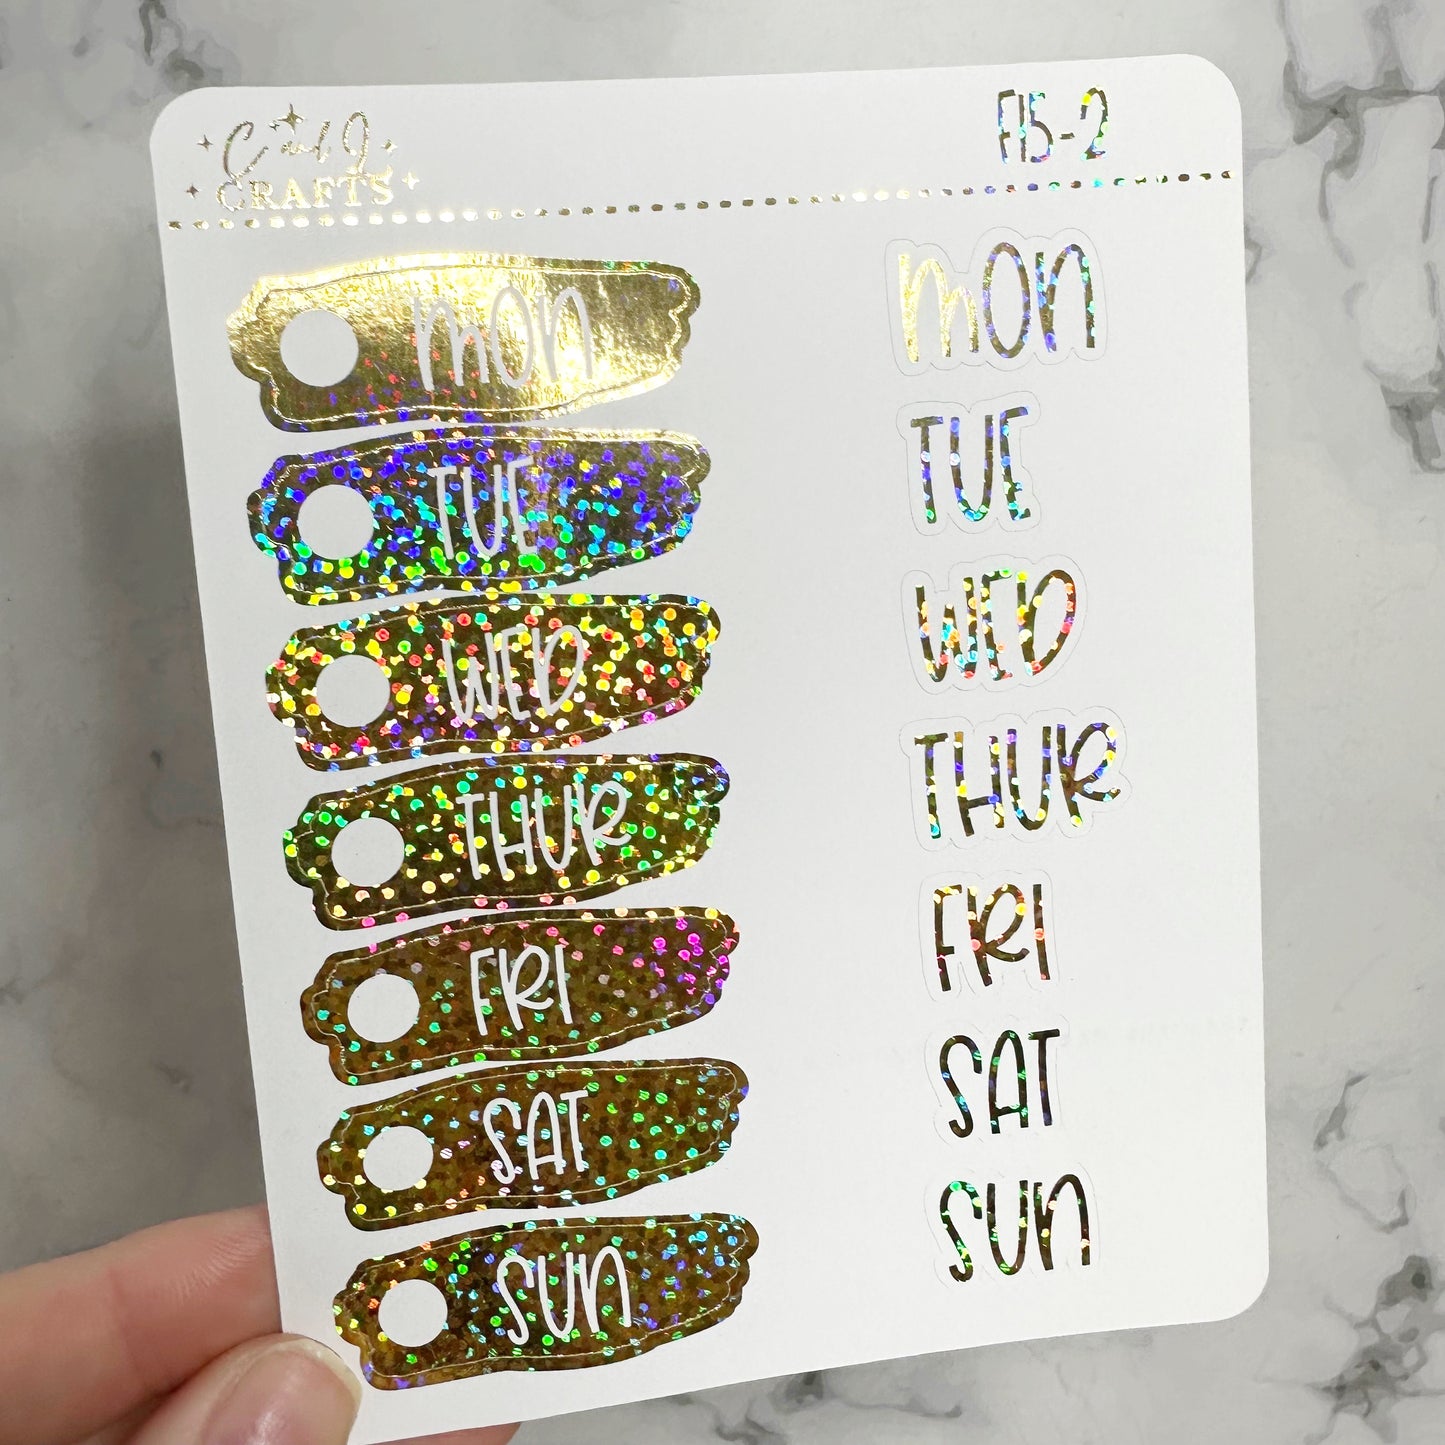 C and J
CRAFTS
F15-2
MON
TUE
WED
THUR
FRI
SAT
SUN
MON
TUE
WED
THUR
FRI
SAT
SUN